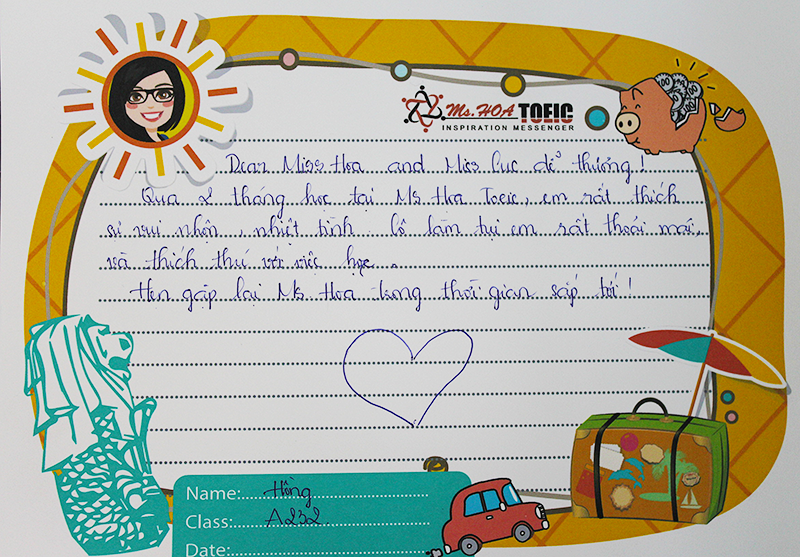 Ms. HOA TOEIC
INSPIRATION MESSENGER
Dear Miss Hoa and Miss Cúc dễ thương!
Qua 2 tháng học tại Ms Hoa Toeic, em rất thích
sự vui nhộn, nhiệt tình. Cô làm tụi em rất thoải mái,
và thích thú với việc học.
Hẹn gặp lại Ms. Hoa trong thời gian sắp tới!
Name: Hồng
Class: A232
Date: